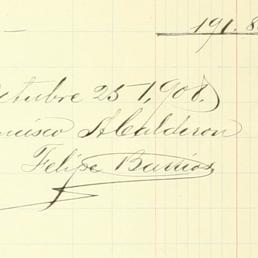 191.8
Octubre 25 1,908.
ncisco A Calderon
Felipe Barrios